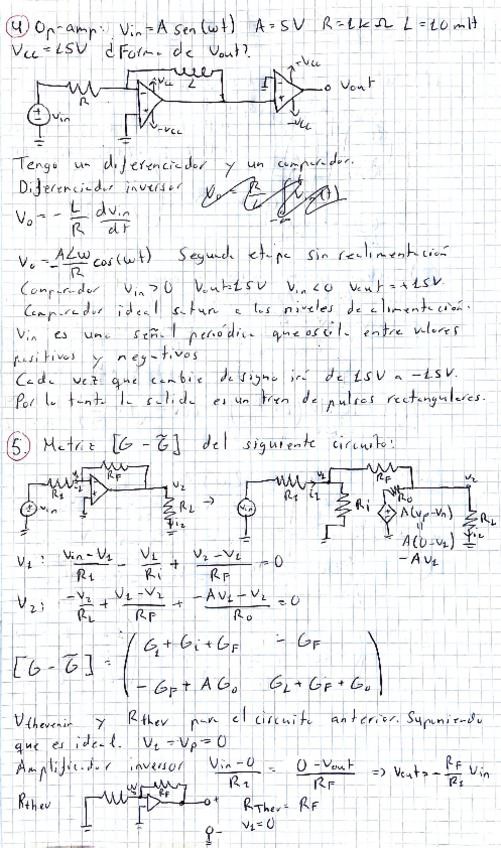 4) Op-amp: Vin = A sen(wt) A = 5V R = 1kΩ L = 10 mH
Vcc = 15V ¿Forma de Vout?
L +Vcc
+Vcc
R
Vout
Vin
-Vcc -Vcc
Tengo un diferenciador y un comparador.
Diferenciador inversor
Vo = - L/R dvin/dt
Vo = - ALw/R cos(wt) Segunda etapa sin realimentación
Comparador Vin > 0 Vout = 15V Vin < 0 Vout = +15V
Comparador ideal satura a los niveles de alimentación.
Vin es una señal periódica que oscila entre valores
positivos y negativos
Cada vez que cambie de signo irá de 15V a -15V.
Por lo tanto la salida es un tren de pulsos rectangulares.
5. Matriz [G - G̃] del siguiente circuito:
RF V2 R1 Vin RL i2
R1 i1 V1 Ri RF Ro V2 RL i2 Vin
A(Vp - Vn)
A(0 - V1)
-AV1
V1: (Vin - V1)/R1 - V1/Ri + (V2 - V1)/RF = 0
V2: -V2/RL + (V1 - V2)/RF + (-AV1 - V2)/Ro = 0
[G - G̃] = ( G1 + Gi + GF - GF
- GF + AGo GL + GF + Go )
Vthevenin y Rthev para el circuito anterior. Suponiendo
que es ideal. V1 = Vp = 0
Amplificador inversor (Vin - 0)/R1 = (0 - Vout)/RF => Vout = - RF/R1 Vin
Rthev RF RThev = RF
V1 = 0